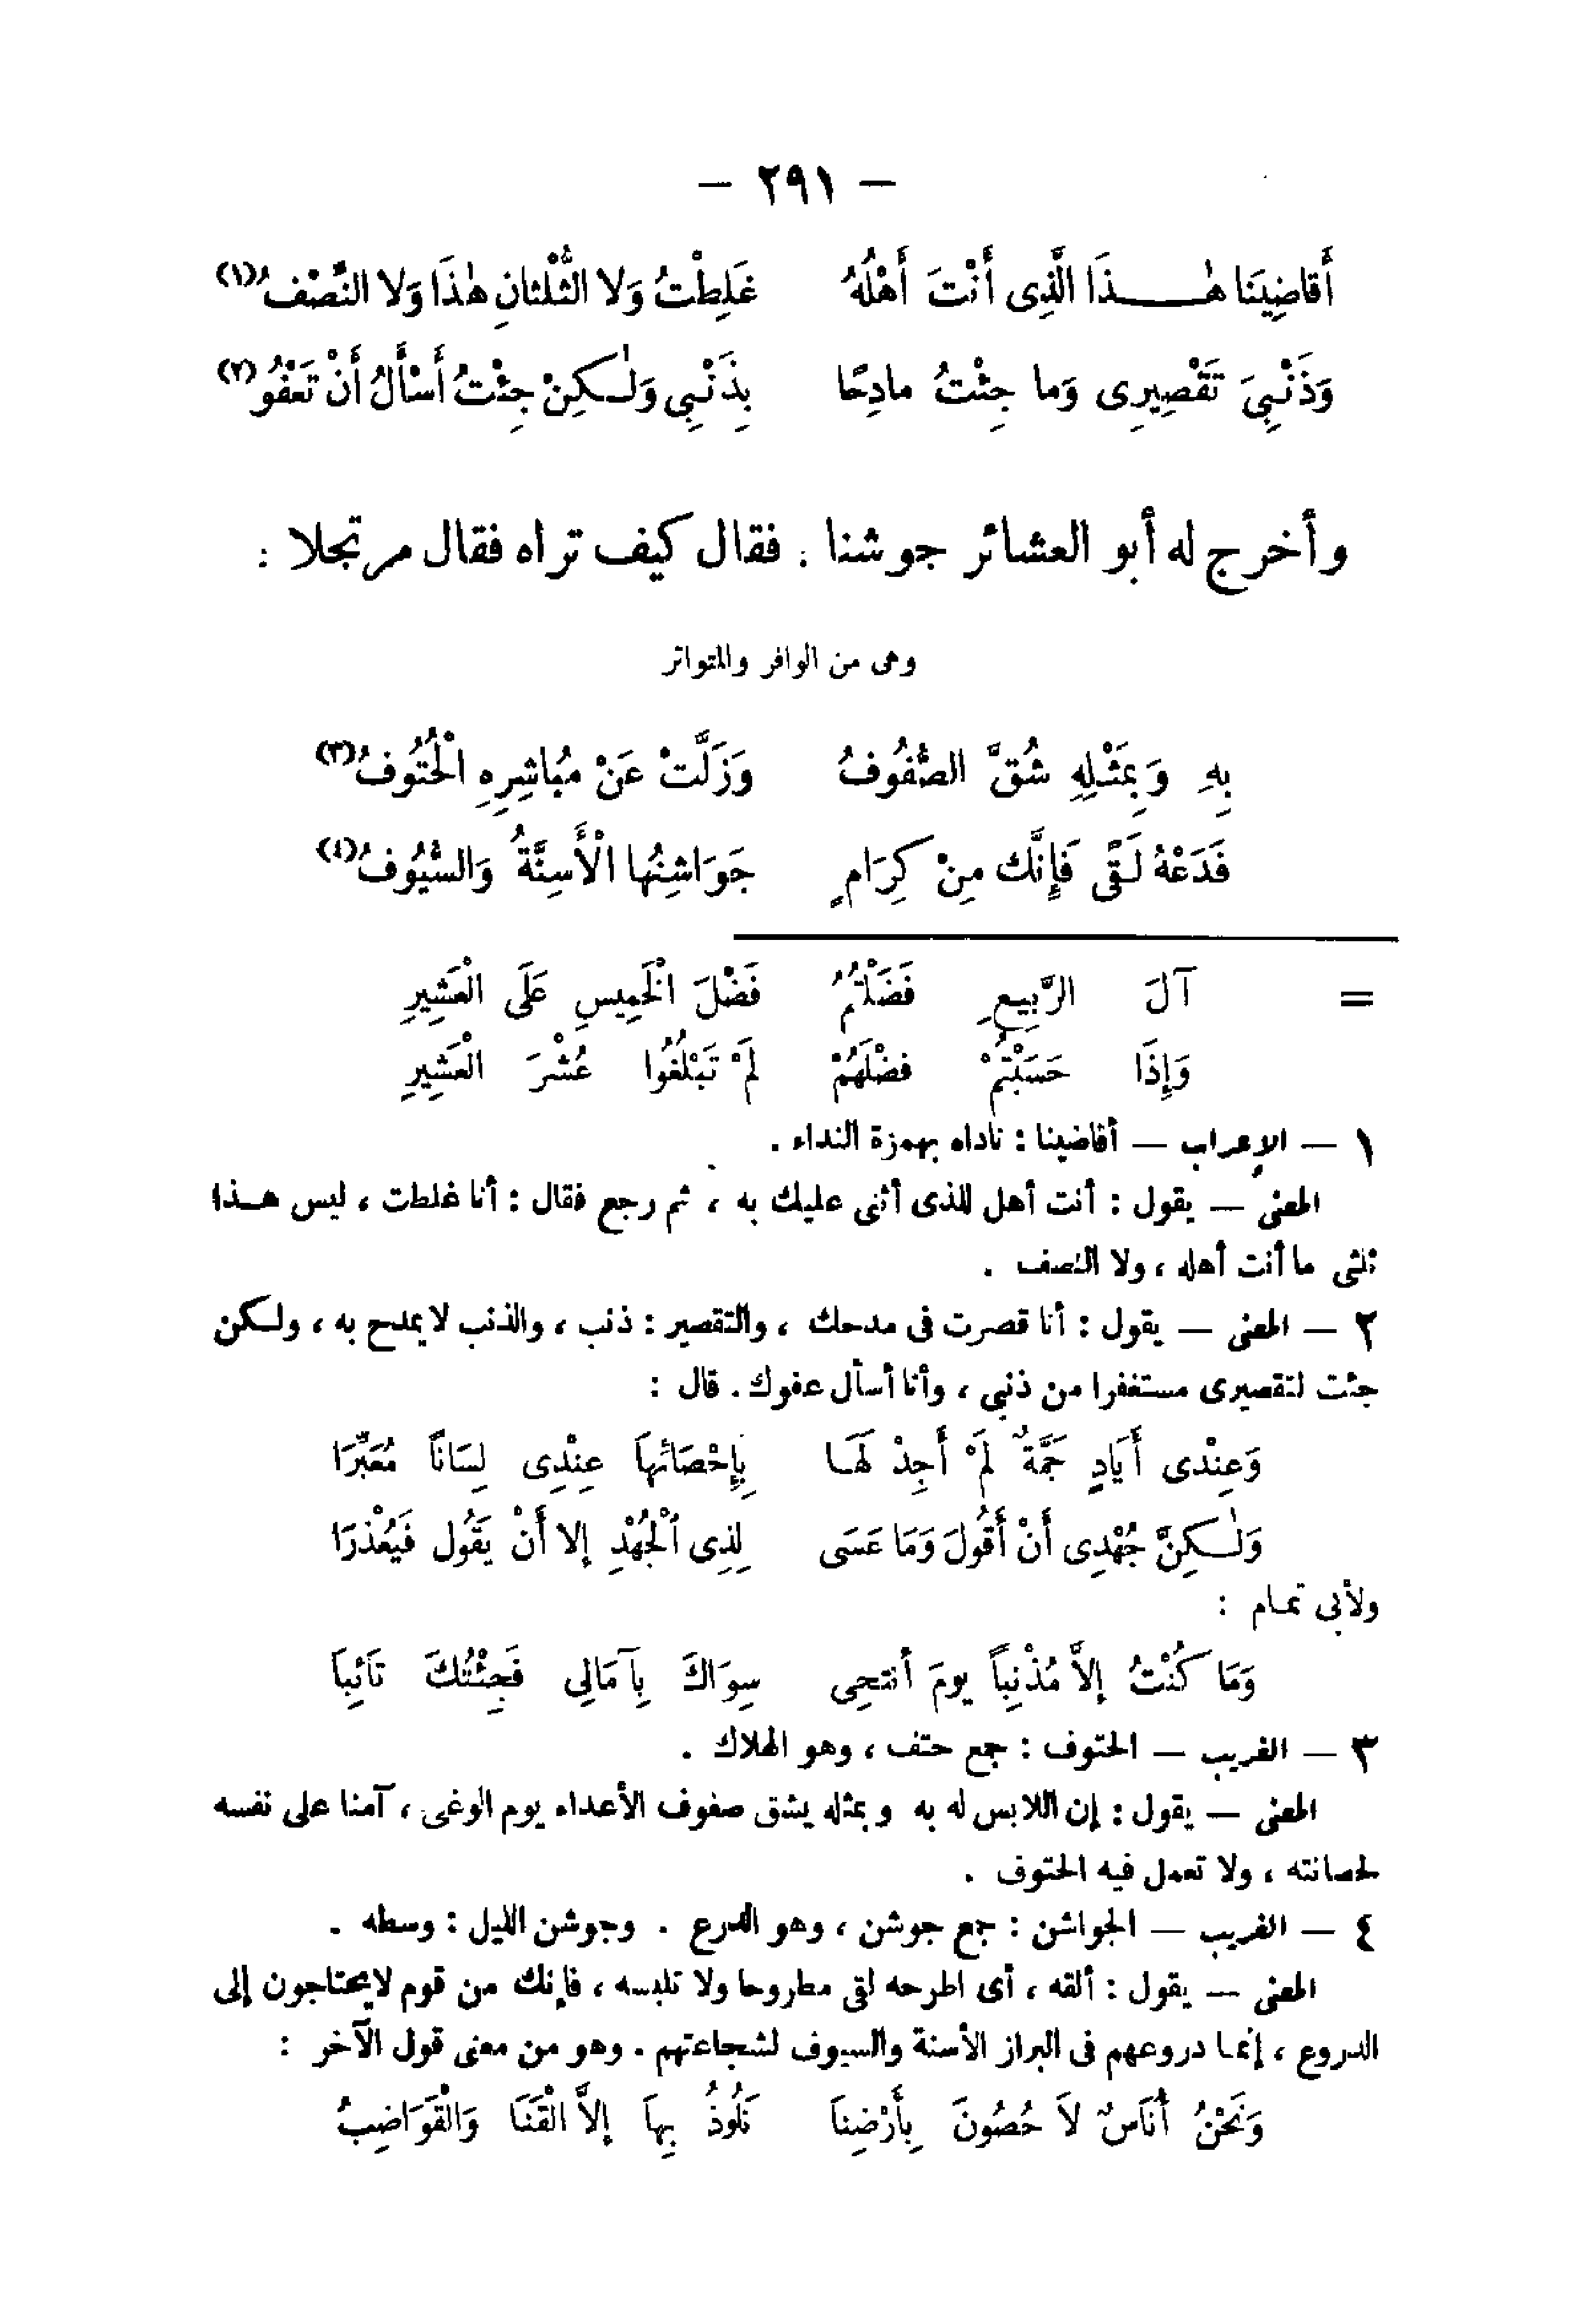 — ٢٩١ —
أَقاضِيَنَا هٰـذَا الَّذِى أَنْتَ أَهْلُهُ غَلِطْتُ وَلا الثُّلْثانِ هٰذَا وَلا النِّصْفُ(١)
وَذَنْبِىَ تَقْصِيرِى وَما جِئْتُ مادِحًا بِذَنْبِى وَلٰـكِنْ جِئْتُ أَسْأَلُ أَنْ تَعْفُو(٢)
وأخرج له أبو العشائر جوشنا : فقال كيف تراه فقال مرتجلا :
وهى من الوافر والمتواتر
بِهِ وَبِمَثْلِهِ شُقَّ الصُّفُوفُ وَزَلَّتْ عَنْ مُباشِرِهِ الْحُتُوفُ(٣)
فَدَعْهُ لَقًى فَإِنَّكَ مِنْ كِرَامٍ جَوَاشِنُها الْأَسِنَّةُ وَالسُّيُوفُ(٤)
= آلَ الرَّبِيعِ فَضَلْتُمُ فَضْلَ الْخَمِيسِ عَلَى الْعَشِيرِ
وَإِذَا حَسَبْتُمْ فضْلَهُمْ لَمْ تَبْلُغُوا عُشْرَ الْعَشِيرِ
١ — الإعراب — أقاضينا : ناداه بهمزة النداء .
المعنى — يقول : أنت أهل للذى أثنى عليك به ، ثم رجع فقال : أنا غلطت ، ليس هـذا
ثلثى ما أنت أهله ، ولا النصف .
٢ — المعنى — يقول : أنا قصرت فى مدحك ، والتقصير : ذنب ، والذنب لا يمدح به ، ولـكن
جئت لتقصيرى مستغفرا من ذنبى ، وأنا أسأل عفوك . قال :
وَعِنْدى أَيَادٍ جَمَّةٌ لَمْ أَجِدْ لَهَـا بِإِحْصَائِهاَ عِنْدِى لِسَاناً مُعَبِّرَا
وَلٰـكِنَّ جُهْدِى أَنْ أَقُولَ وَمَا عَسَى لِذِى الْجُهْدِ إلا أَنْ يَقُول فَيُعْذرَا
ولأبى تمـام :
وَمَا كُنْتُ إلاَّ مُذْنِباً يومَ أنتحِى سِوَاكَ بِآمَالِى فَجِئْتُكَ تَائِبَا
٣ — الغريب — الحتوف : جمع حتف ، وهو الهلاك .
المعنى — يقول : إن اللابس له به وبمثله يشق صفوف الأعداء يوم الوغى ، آمنا على نفسه
لحصانته ، ولا تعمل فيه الحتوف .
٤ — الغريب — الجواشن : جمع جوشن ، وهو الدرع . وجوشن الليل : وسطه .
المعنى — يقول : ألقه ، أى اطرحه لقى مطروحا ولا تلبسه ، فإنك من قوم لا يحتاجون إلى
الدروع ، إنمـا دروعهم فى البراز الأسنة والسيوف لشجاعتهم . وهو من معنى قول الآخر :
وَنَحْنُ أُنَاسٌ لاَ حُصُونَ بِأَرْضِناَ نَلُوذُ بِهاَ إلاَّ الْقَنَا وَالْقَوَاضِبُ